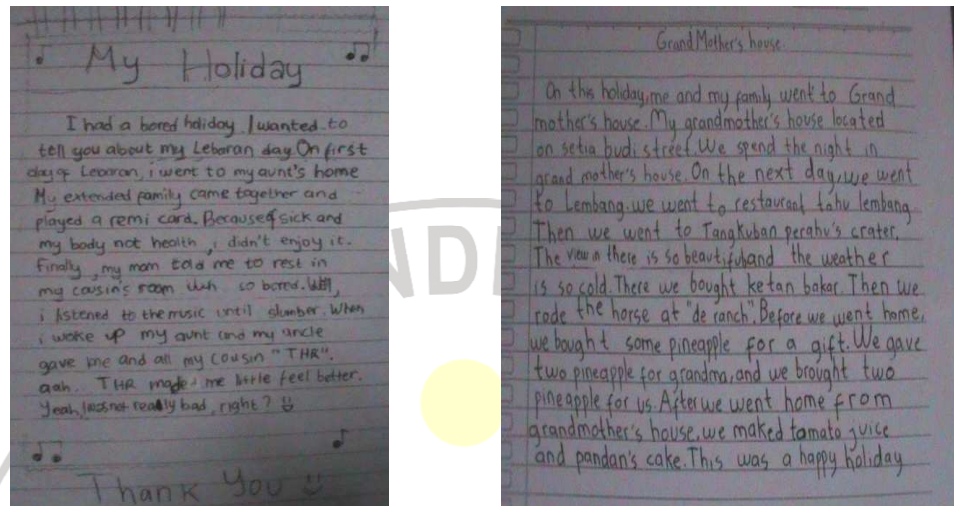 My Holiday
I had a bored holiday I wanted to
tell you about my Lebaran day. On first
day of Lebaran, i went to my aunt's home
My extended family came together and
played a remi card. Because of sick and
my body not health, i didn't enjoy it.
Finally, my mom told me to rest in
my cousin's room so bored.
i listened to the music until slumber. When
i woke up my aunt and my uncle
gave me and all my cousin "THR".
aah. THR made me little feel better.
Yeah, not really bad, right?
Thank You
GrandMother's house.
On this holiday, me and my family went to Grand
mother's house. My grandmother's house located
on setia budi street. We spend the night in
grand mother's house. On the next day, we went
to Lembang. we went to restaurant tahu lembang
Then we went to Tangkuban perahu's crater.
The view in there is so beautiful and the weather
is so cold. There we bought ketan bakar. Then we
rode the horse at "de ranch". Before we went home,
we bought some pineapple for a gift. We gave
two pineapple for grandma, and we brought two
pineapple for us. After we went home from
grandmother's house, we maked tomato juice
and pandan's cake. This was a happy holiday